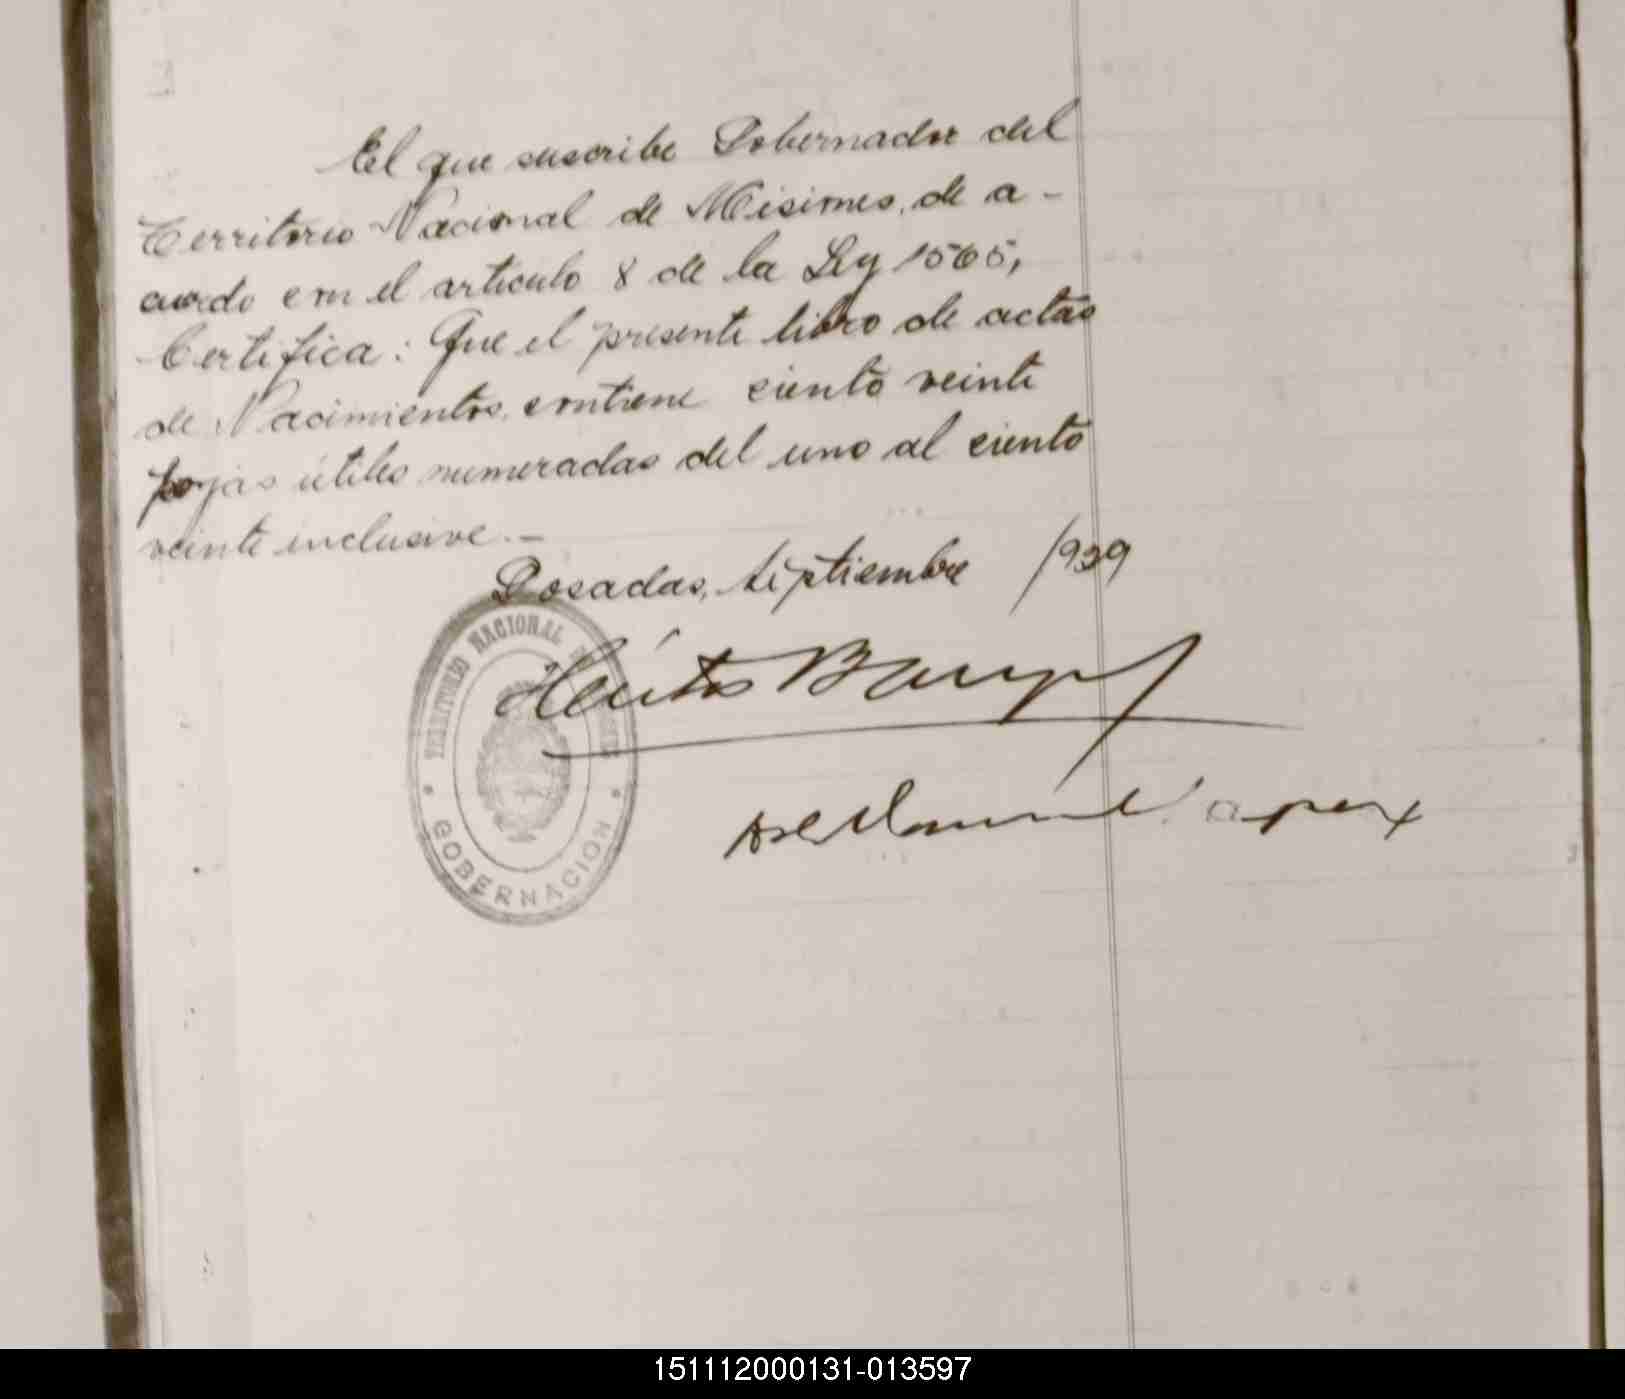 El que suscribe Gobernador del
Territorio Nacional de Misiones, de a-
cuerdo con el artículo 8 de la Ley 1565,
Certifica: Que el presente libro de actas
de Nacimientos, contiene ciento veinte
fojas útiles numeradas del uno al ciento
veinte inclusive.-
Posadas, Septiembre 1939
TERRITORIO NACIONAL DE MISIONES
GOBERNACION
151112000131-013597